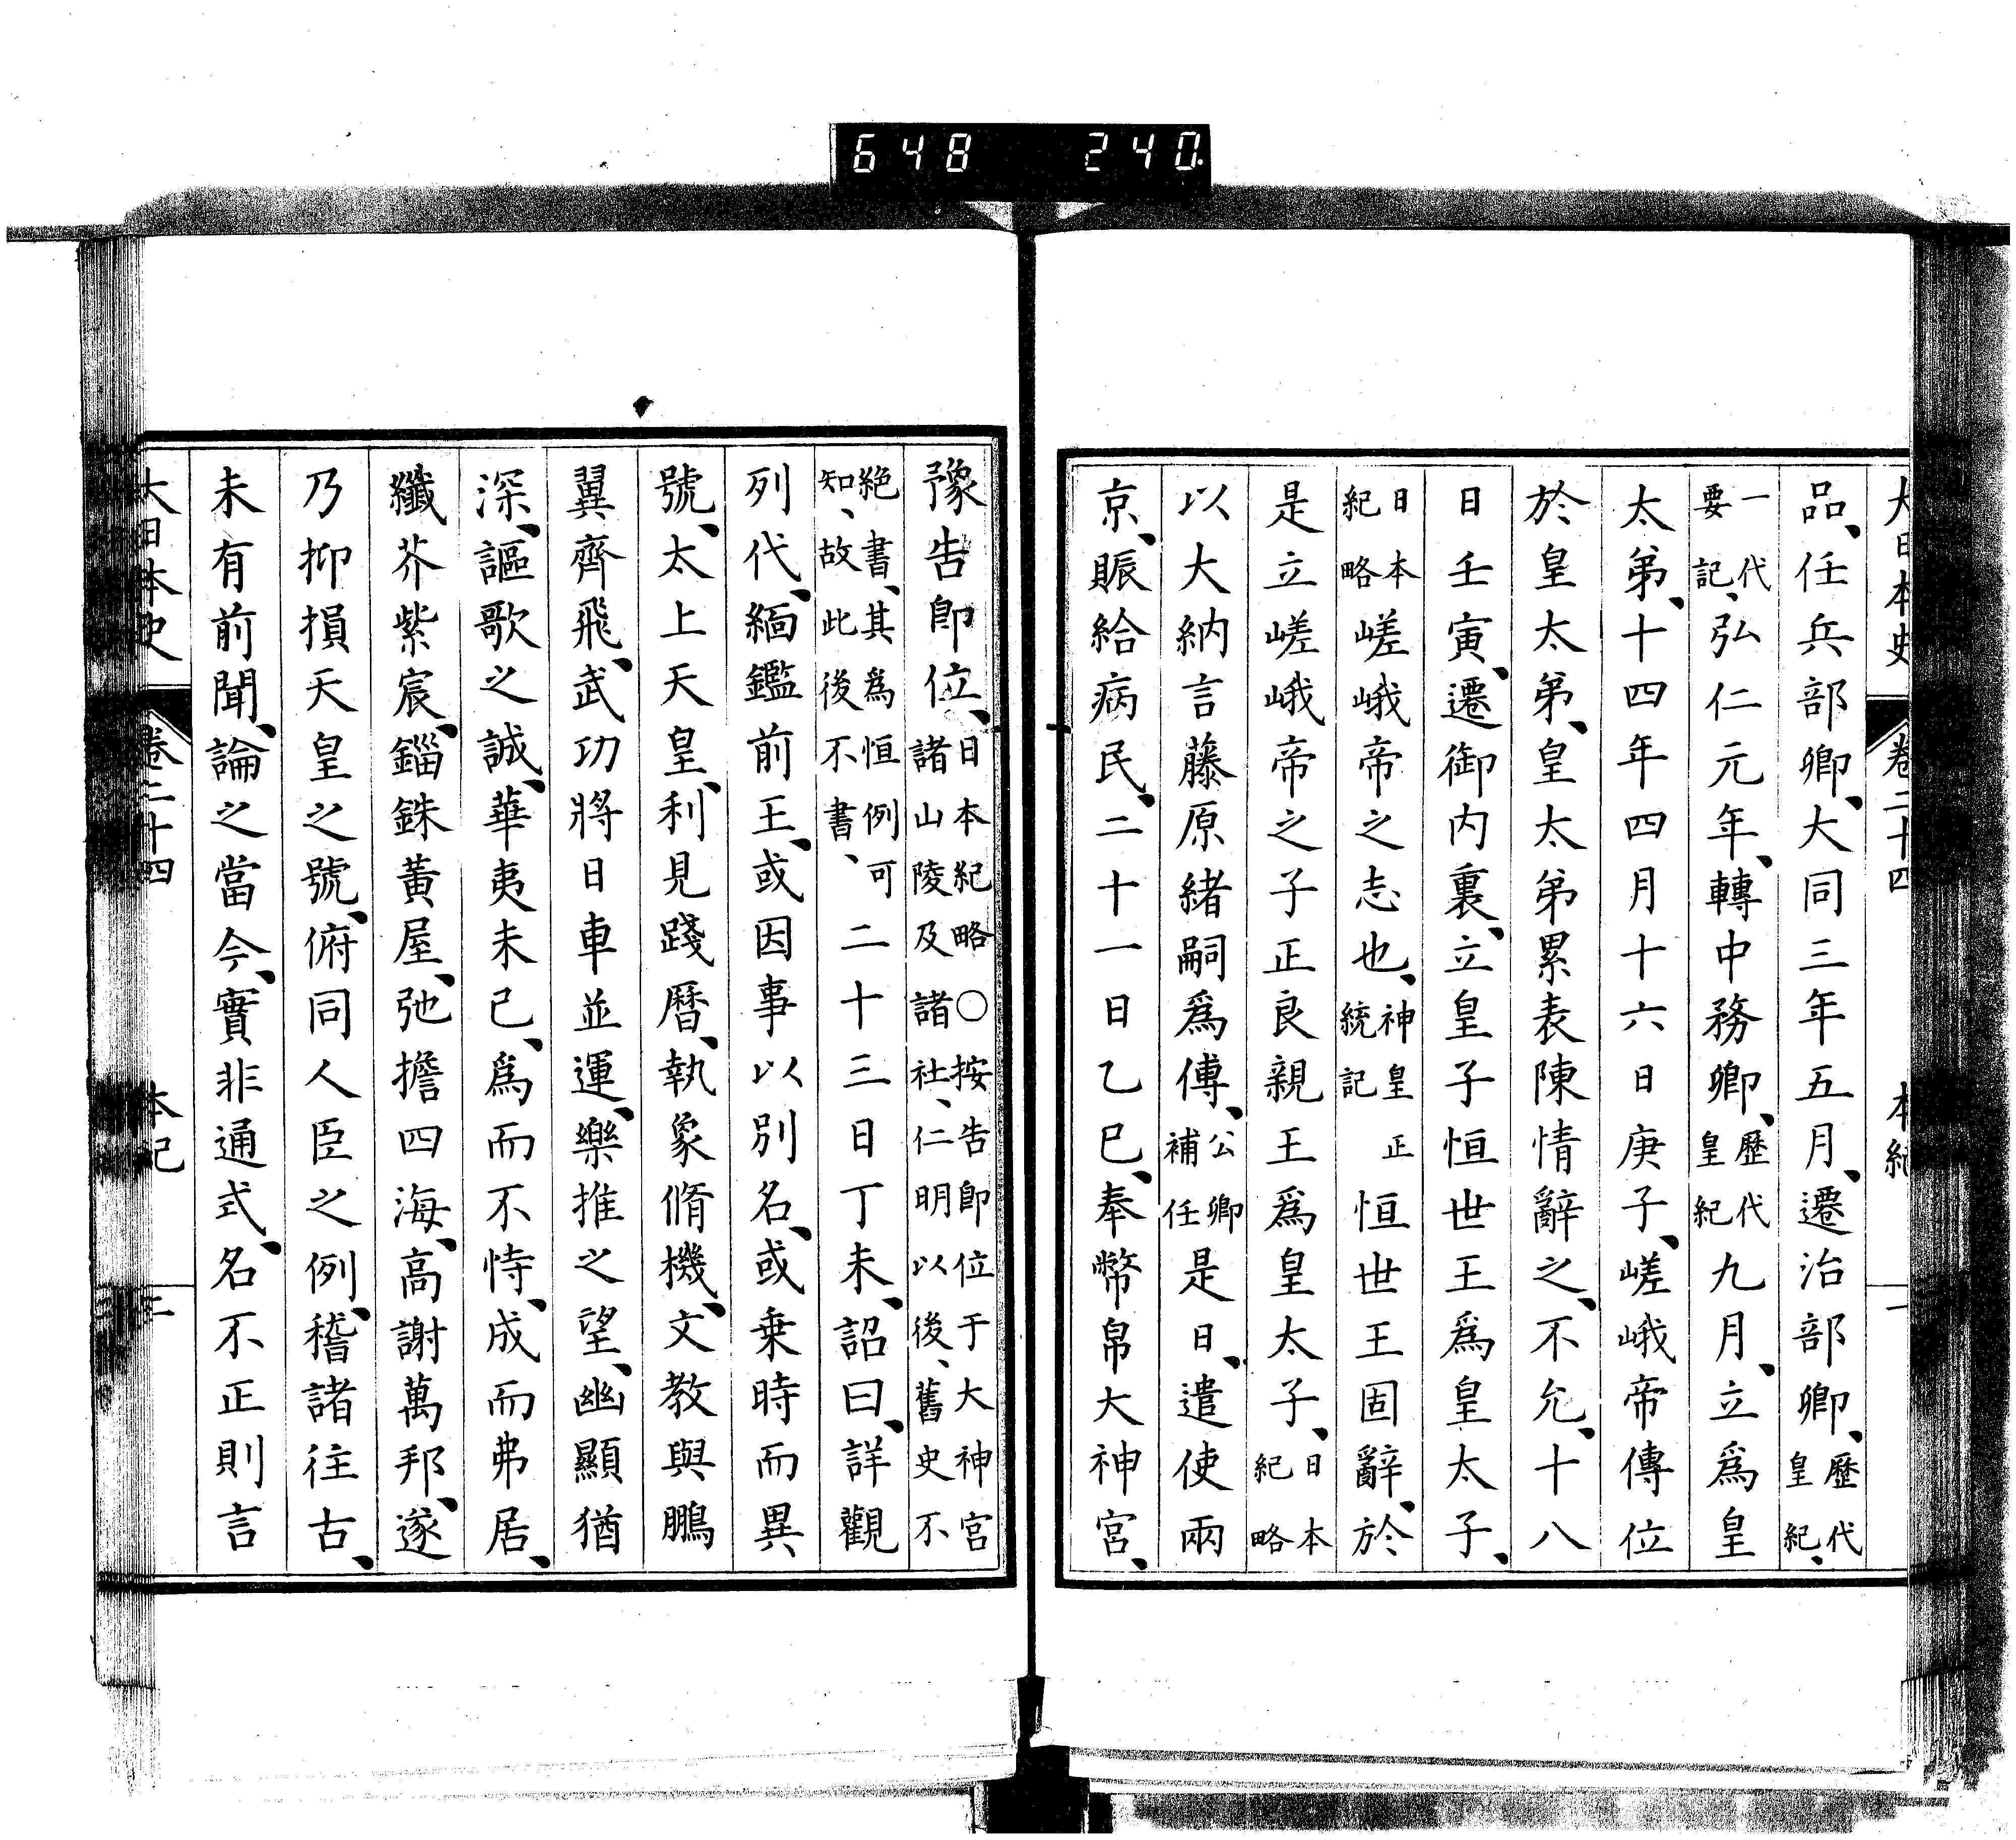 648 240
大日本史 卷二十四 本紀 一
品、任兵部卿、大同三年五月、遷治部卿、歷代皇紀、
一代要記、弘仁元年、轉中務卿、歷代皇紀九月、立爲皇
太弟、十四年四月十六日庚子、嵯峨帝傳位
於皇太弟、皇太弟累表陳情辭之、不允、十八
日壬寅、遷御内裏、立皇子恒世王爲皇太子、
日本紀略嵯峨帝之志也、神皇正統記恒世王固辭、於
是立嵯峨帝之子正良親王爲皇太子、日本紀略
以大納言藤原緒嗣爲傅、公卿補任是日、遣使兩
京、賑給病民、二十一日乙巳、奉幣帛大神宮、
豫告卽位、日本紀略○按告卽位于大神宮諸山陵及諸社、仁明以後、舊史不
絶書、其爲恒例可知、故此後不書、二十三日丁未、詔曰、詳觀
列代、緬鑑前王、或因事以別名、或乗時而異
號、太上天皇、利見踐曆、執象脩機、文教與鵬
翼齊飛、武功將日車並運、樂推之望、幽顯猶
深、謳歌之誠、華夷未已、爲而不恃、成而弗居、
纖芥紫宸、錙銖黃屋、弛擔四海、高謝萬邦、遂
乃抑損天皇之號、俯同人臣之例、稽諸往古、
未有前聞、論之當今、實非通式、名不正則言
大日本史 卷二十四 本紀